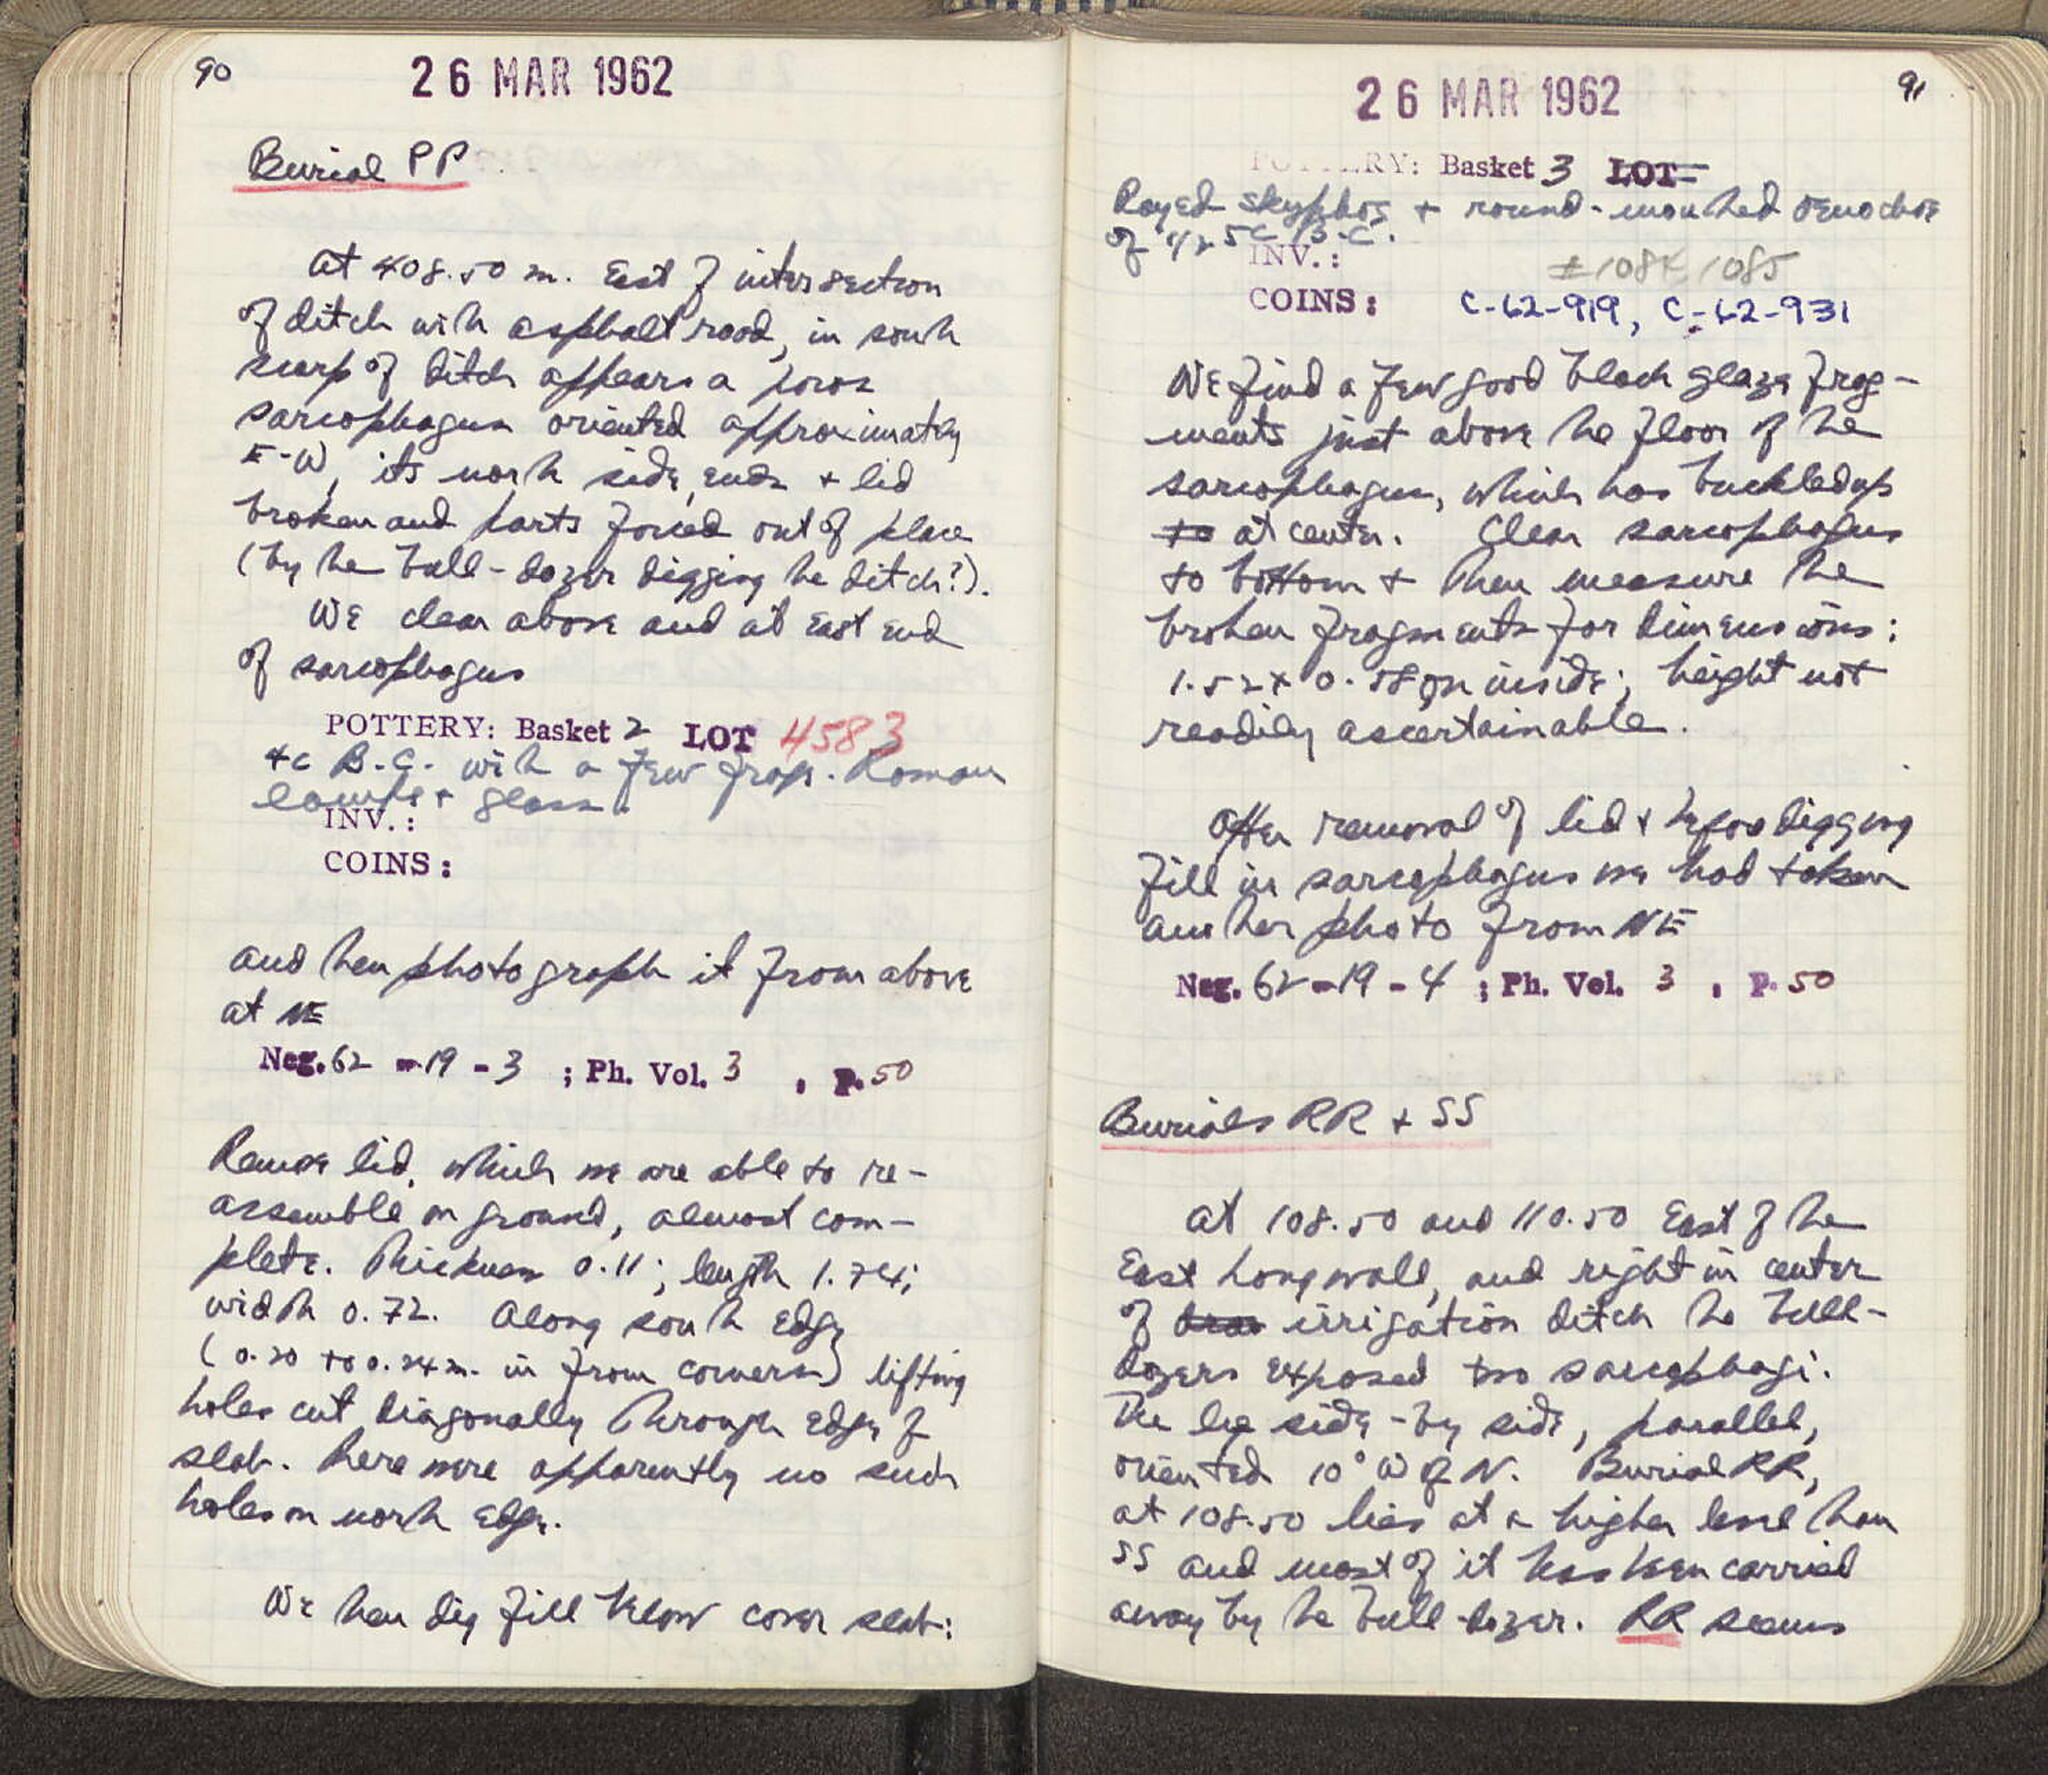 90
26 MAR 1962
Burial PP
At 408.50 m. East of intersection
of ditch with asphalt road, in south
scarp of ditch appears a poros
sarcophagus oriented approximately
E-W, its north side, ends + lid
broken and parts forced out of place
(by the bull-dozer digging the ditch?).
We clear above and at East end
of sarcophagus
POTTERY: Basket 2 LOT 4583
4c B.C. with a few frags. Roman
lamps + glass.
INV.:
COINS:
and then photograph it from above
at NE
Neg. 62 - 19 - 3 ; Ph. Vol. 3 , p. 50
Remove lid, which we are able to re-
assemble on ground, almost com-
plete. Thickness 0.11; length 1.74;
width 0.72. Along south edge
(0.20 to 0.24 m. in from corners) lifting
holes cut diagonally through edge of
slab. There were apparently no such
holes on north edge.
We then dig fill below cover slab:
26 MAR 1962
91
POTTERY: Basket 3 LOT
Rayed skyphos + round-mouthed oenochoe
of 425 B.C.
INV.:
1085
COINS: C-62-919, C-62-931
We find a few good black glaze frag-
ments just above the floor of the
sarcophagus, which has buckled up
to at center. Clear sarcophagus
to bottom + then measure the
broken fragments for dimensions:
1.52 x 0.58 m inside; height not
readily ascertainable.
After removal of lid + before digging
fill in sarcophagus we had taken
another photo from NE
Neg. 62 - 19 - 4 ; Ph. Vol. 3 , p. 50
Burials RR + SS
At 108.50 and 110.50 East of the
East Longwall, and right in center
of irrigation ditch the bull-
dozers exposed two sarcophagi.
The lie side-by side, parallel,
oriented 10° W of N. Burial RR,
at 108.50 lies at a higher level than
SS and most of it has been carried
away by the bull-dozer. RR seems